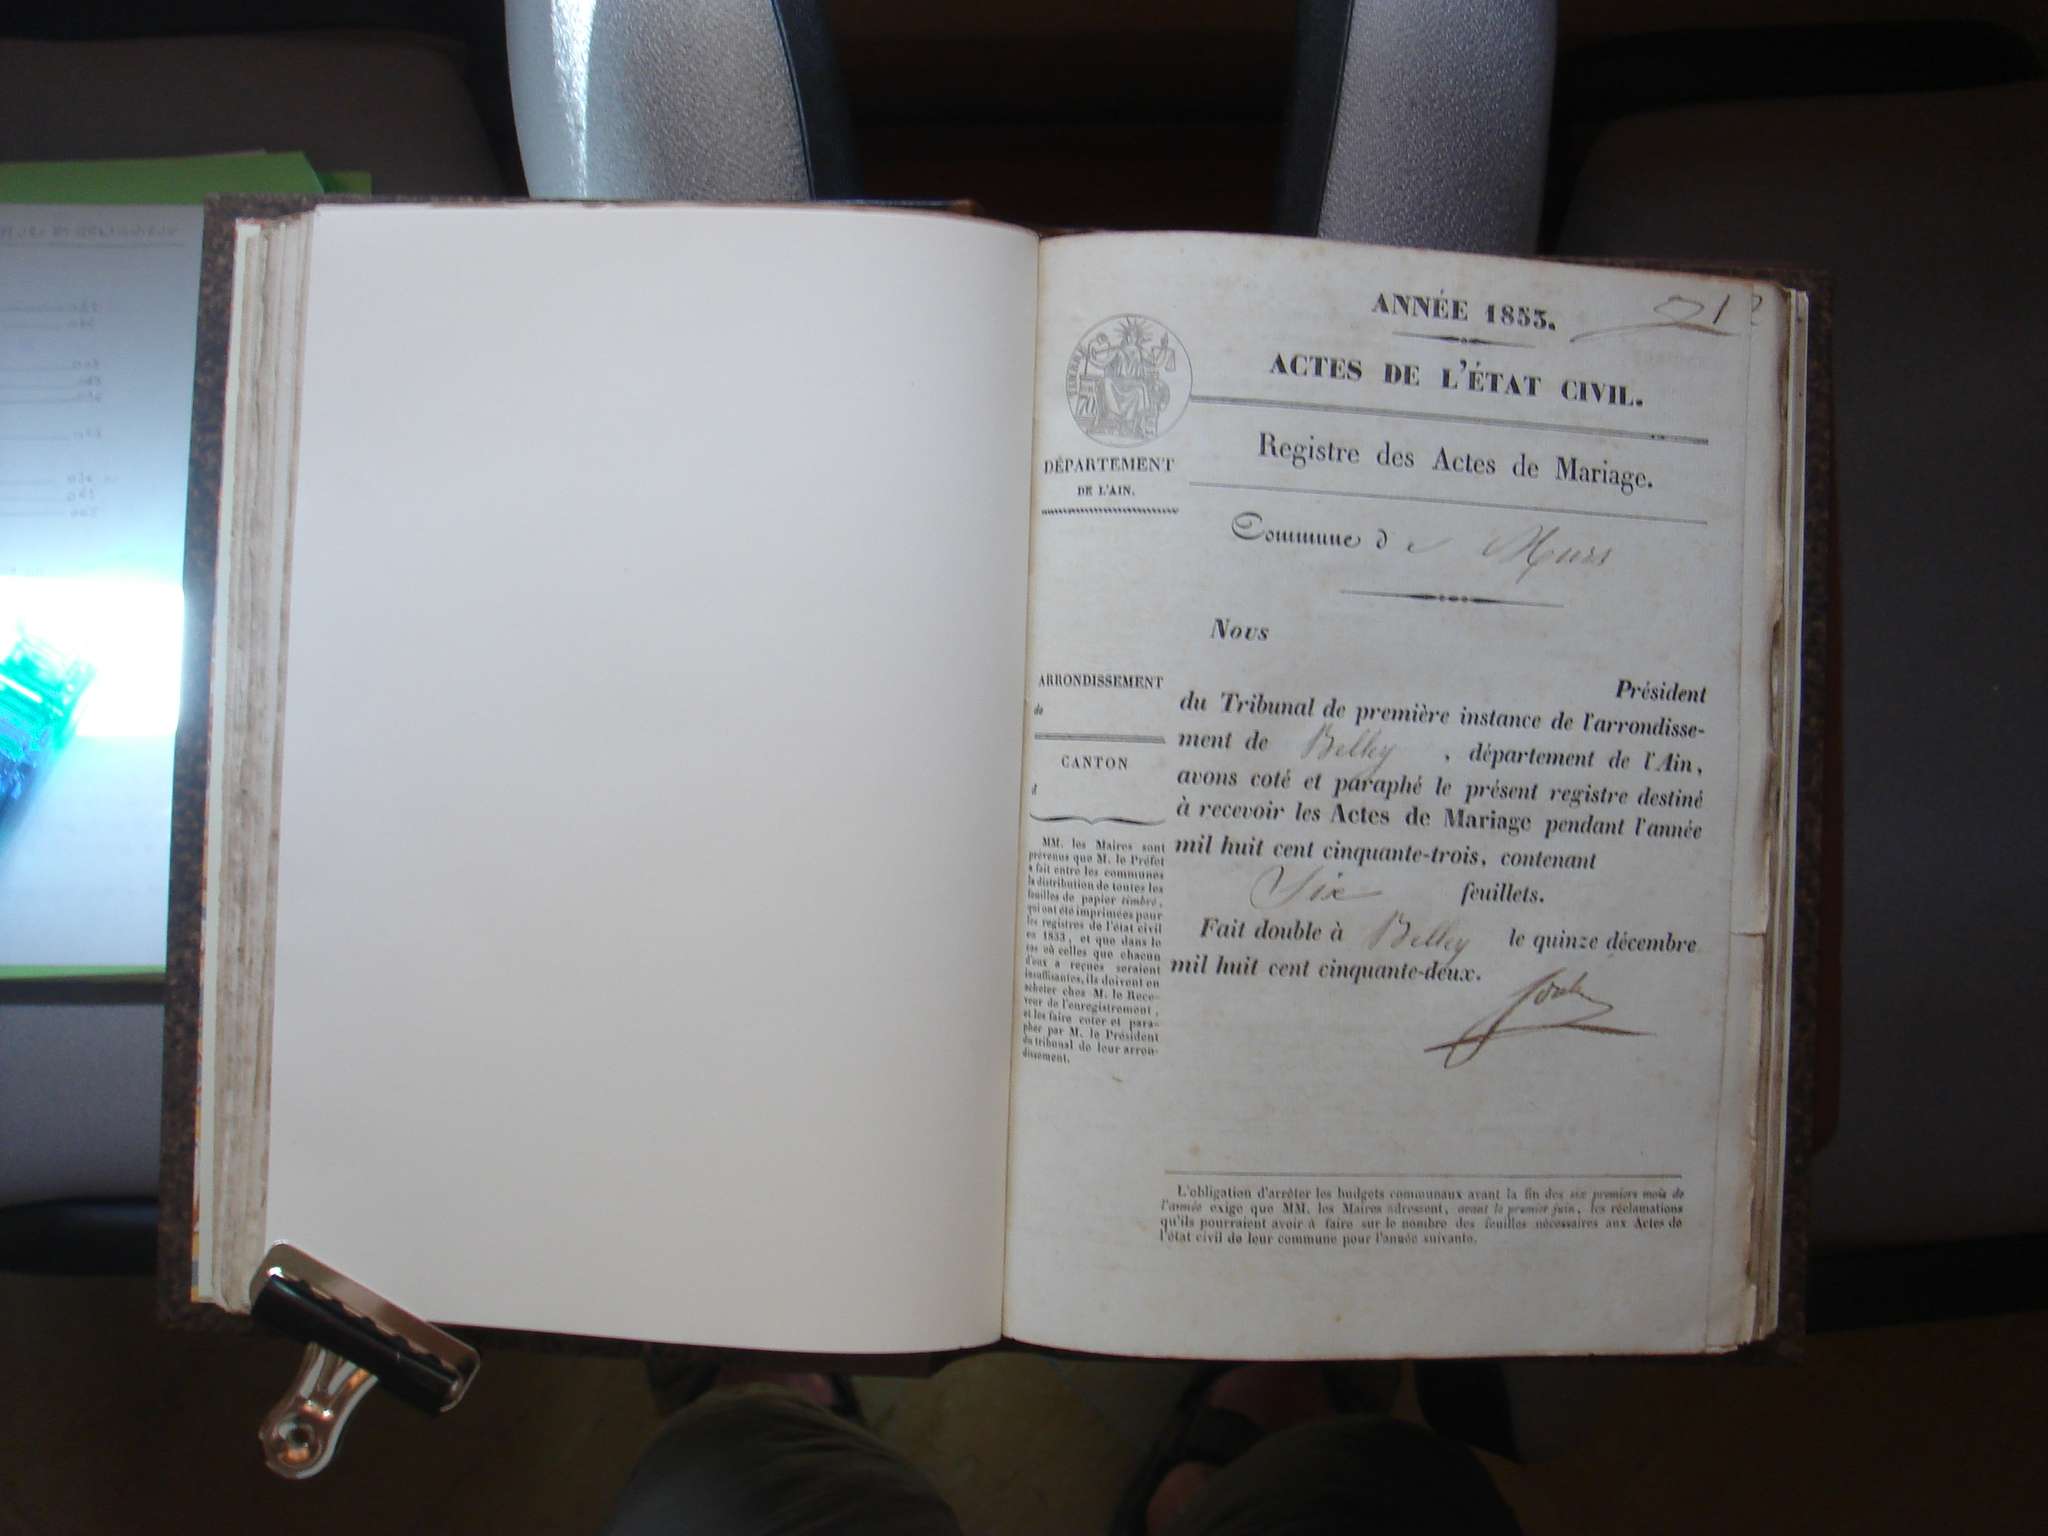 ANNÉE 1853.
ACTES DE L'ÉTAT CIVIL.
Registre des Actes de Mariage.
DÉPARTEMENT
DE L'AIN.
Commune de Murs
Nous
Président
du Tribunal de première instance de l'arrondisse-
ment de Belley, département de l'Ain,
avons coté et paraphé le présent registre destiné
à recevoir les Actes de Mariage pendant l'année
mil huit cent cinquante-trois, contenant
Six feuillets.
Fait double à Belley le quinze décembre
mil huit cent cinquante-deux.
ARRONDISSEMENT
de
CANTON
d
MM. les Maires sont
prévenus que M. le Préfet
a fait entre les communes
la distribution de toutes les
feuilles de papier timbré,
qui ont été imprimées pour
les registres de l'état civil
en 1853, et que dans le
cas où celles que chacun
d'eux a reçues seraient
insuffisantes, ils doivent en
acheter chez M. le Rece-
veur de l'enregistrement,
et les faire coter et para-
pher par M. le Président
du tribunal de leur arron-
dissement.
L'obligation d'arrêter les budgets communaux avant la fin des six premiers mois de
l'année exige que MM. les Maires adressent, avant le premier juin, les réclamations
qu'ils pourraient avoir à faire sur le nombre des feuilles nécessaires aux Actes de
l'état civil de leur commune pour l'année suivante.